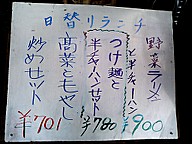 日替リランチ
野菜ラーメン
と半チャーハン
¥900
つけ麺と
半チャーハンセット
¥780
高菜ともやし
炒めセット
¥701